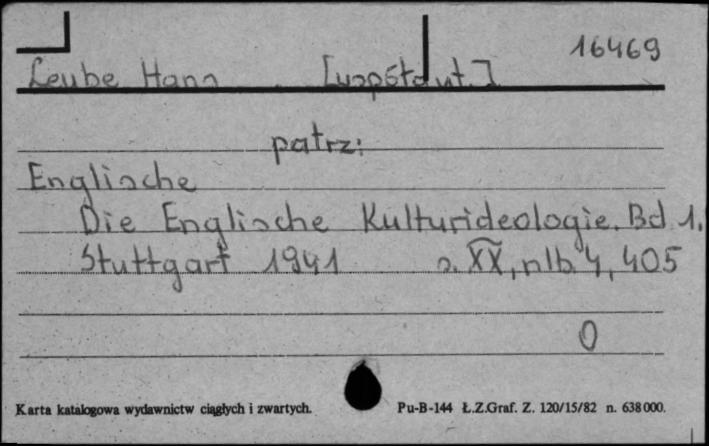 16469
Leube Hans [współaut.]
patrz:
Englische
Die Englische Kulturideologie. Bd 1.
Stuttgart 1941 s. XX, nlb 4, 405
0
Karta katalogowa wydawnictw ciągłych i zwartych. Pu-B-144 Ł.Z.Graf. Z. 120/15/82 n. 638000.